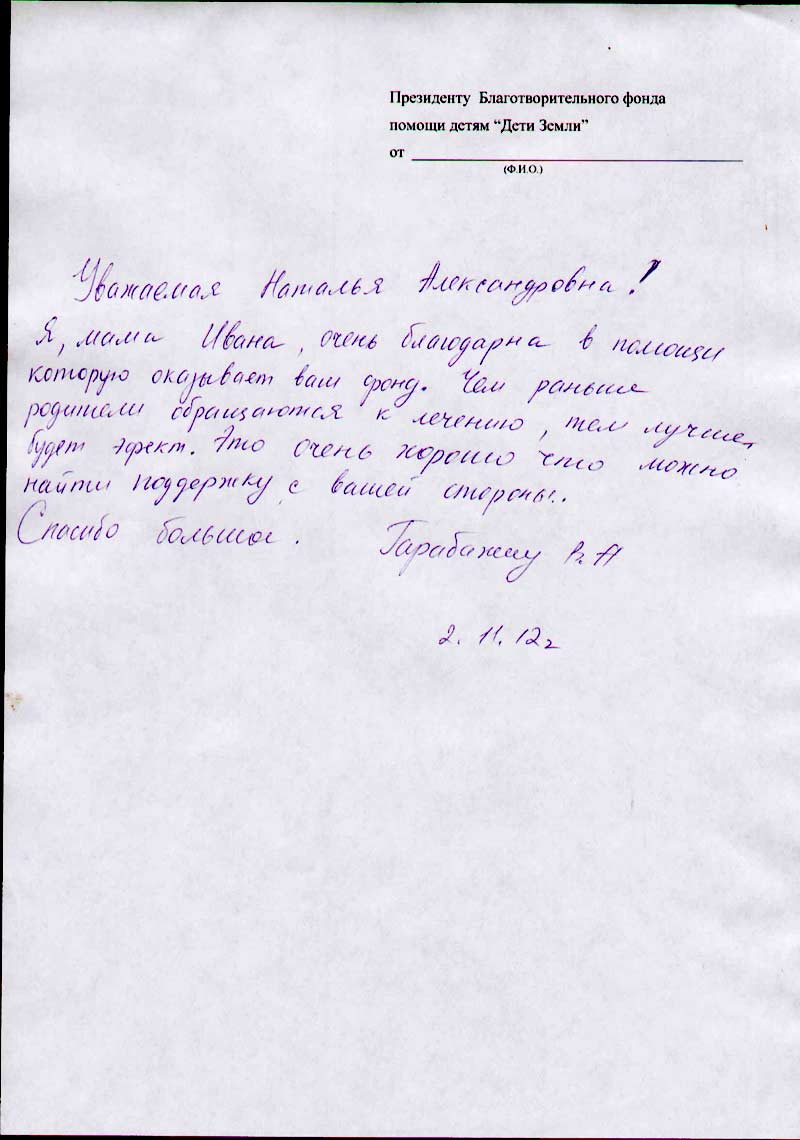 Президенту Благотворительного фонда
помощи детям “Дети Земли”
от
(Ф.И.О.)
Уважаемая Наталья Александровна!
Я, мама Ивана, очень благодарна в помощи
которую оказывает ваш фонд. Чем раньше
родители обращаются к лечению, тем лучше
будет эфект. Это очень хорошо что можно
найти поддержку с вашей стороны.
Спасибо большое. Гарабажиу В.А
2.11.12г